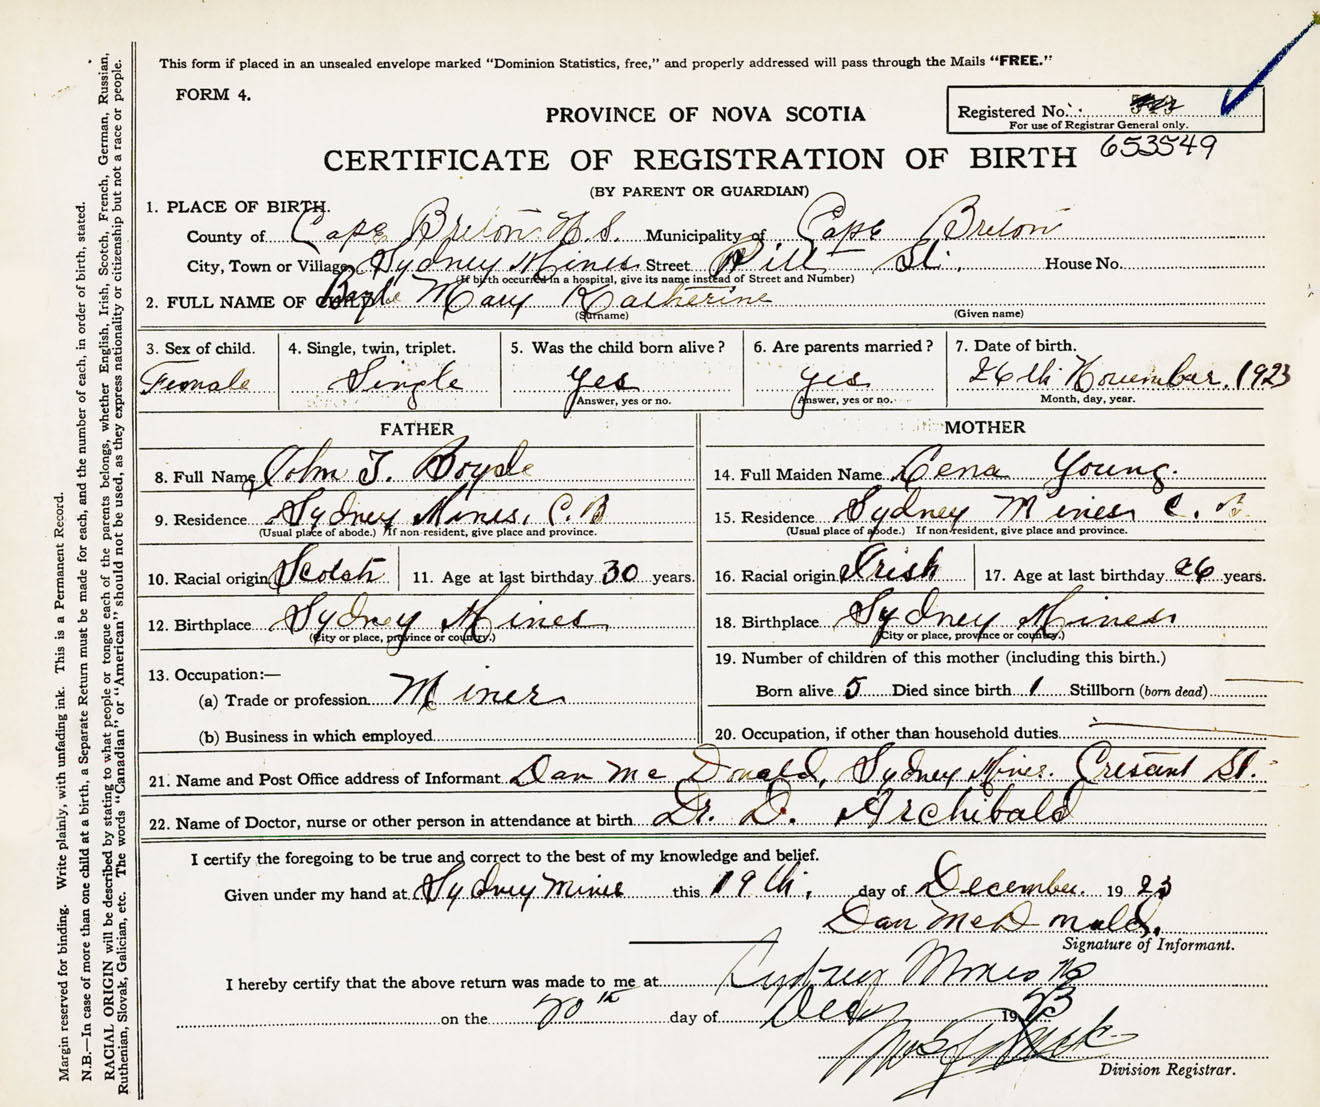 This form if placed in an unsealed envelope marked "Dominion Statistics, free," and properly addressed will pass through the Mails "FREE."
FORM 4.
PROVINCE OF NOVA SCOTIA
Registered No.
For use of Registrar General only.
653549
CERTIFICATE OF REGISTRATION OF BIRTH
(BY PARENT OR GUARDIAN)
1. PLACE OF BIRTH.
County of Cape Breton N.S. Municipality of Cape Breton
City, Town or Village Sydney Mines Street Pitt St. House No.
(If birth occurred in a hospital, give its name instead of Street and Number)
2. FULL NAME OF CHILD Mary Katherine
(Surname) (Given name)
3. Sex of child. 4. Single, twin, triplet. 5. Was the child born alive? 6. Are parents married? 7. Date of birth.
Female Single yes yes 26th November. 1923
Answer, yes or no. Answer, yes or no. Month, day, year.
FATHER MOTHER
8. Full Name John J. 14. Full Maiden Name Lena Young.
9. Residence Sydney Mines, C.B 15. Residence Sydney Mines C. B.
(Usual place of abode.) If non-resident, give place and province. (Usual place of abode.) If non-resident, give place and province.
10. Racial origin Scotch 11. Age at last birthday 30 years. 16. Racial origin Irish 17. Age at last birthday 26 years.
12. Birthplace Sydney Mines 18. Birthplace Sydney Mines
(City or place, province or country.) (City or place, province or country.)
13. Occupation:— 19. Number of children of this mother (including this birth.)
(a) Trade or profession Miner Born alive 5 Died since birth 1 Stillborn (born dead)
(b) Business in which employed 20. Occupation, if other than household duties
21. Name and Post Office address of Informant Dan McDonald, Sydney Mines. Cresant St.
22. Name of Doctor, nurse or other person in attendance at birth Dr. D. Archibald
I certify the foregoing to be true and correct to the best of my knowledge and belief.
Given under my hand at Sydney Mines this 19th, day of December. 1923
Dan McDonald.
Signature of Informant.
I hereby certify that the above return was made to me at Sydney Mines NS
on the 20th day of Dec 1923
Division Registrar.
Margin reserved for binding. Write plainly, with unfading ink. This is a Permanent Record.
N.B.—In case of more than one child at a birth, a Separate Return must be made for each, and the number of each, in order of birth, stated.
RACIAL ORIGIN will be described by stating to what people or tongue each of the parents belongs, whether English, Irish, Scotch, French, German, Russian,
Ruthenian, Slovak, Galician, etc. The words "Canadian" or "American" should not be used, as they express nationality or citizenship but not a race or people.